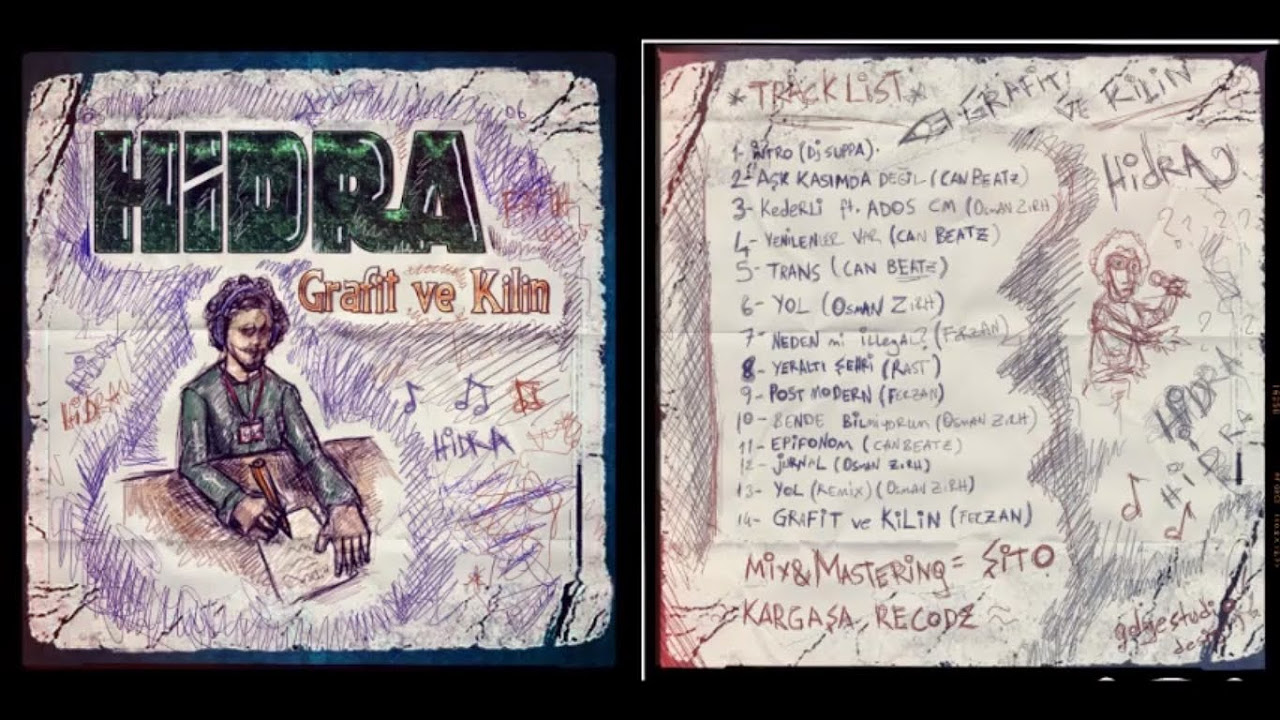 HiDRA
Grafit ve Kilin
06
HiDRA
HiDRA
*TRACKLiST*
GRAFiT ve KiLiN
HidRA
1- iNTRO (Dj SUPPA).
2- AŞK KASIMDA DEĞİL (CAN BEATZ)
3- KedeRLi ft. ADOS CM (OSMAN ZIRH)
4- YENiLENLER VAR (CAN BEATZ)
5- TRANS (CAN BEATZ)
6- YOL (OSMAN ZIRH)
7- NEDEN mi illegal? (FERZAN)
8- YERALTI ŞEHRi (RAST)
9- POST MODERN (FERZAN)
10- BENDE BiLMiYORUM (OSMAN ZIRH)
11- EPiFONOM (CANBEATZ)
12- JURNAL (OSMAN ZIRH)
13- YOL (REMiX) (OSMAN ZIRH)
14- GRAFiT ve KiLiN (FERZAN)
HiDRA
MiX&MASTERiNG = ŞiTO
KARGAŞA RECODZ